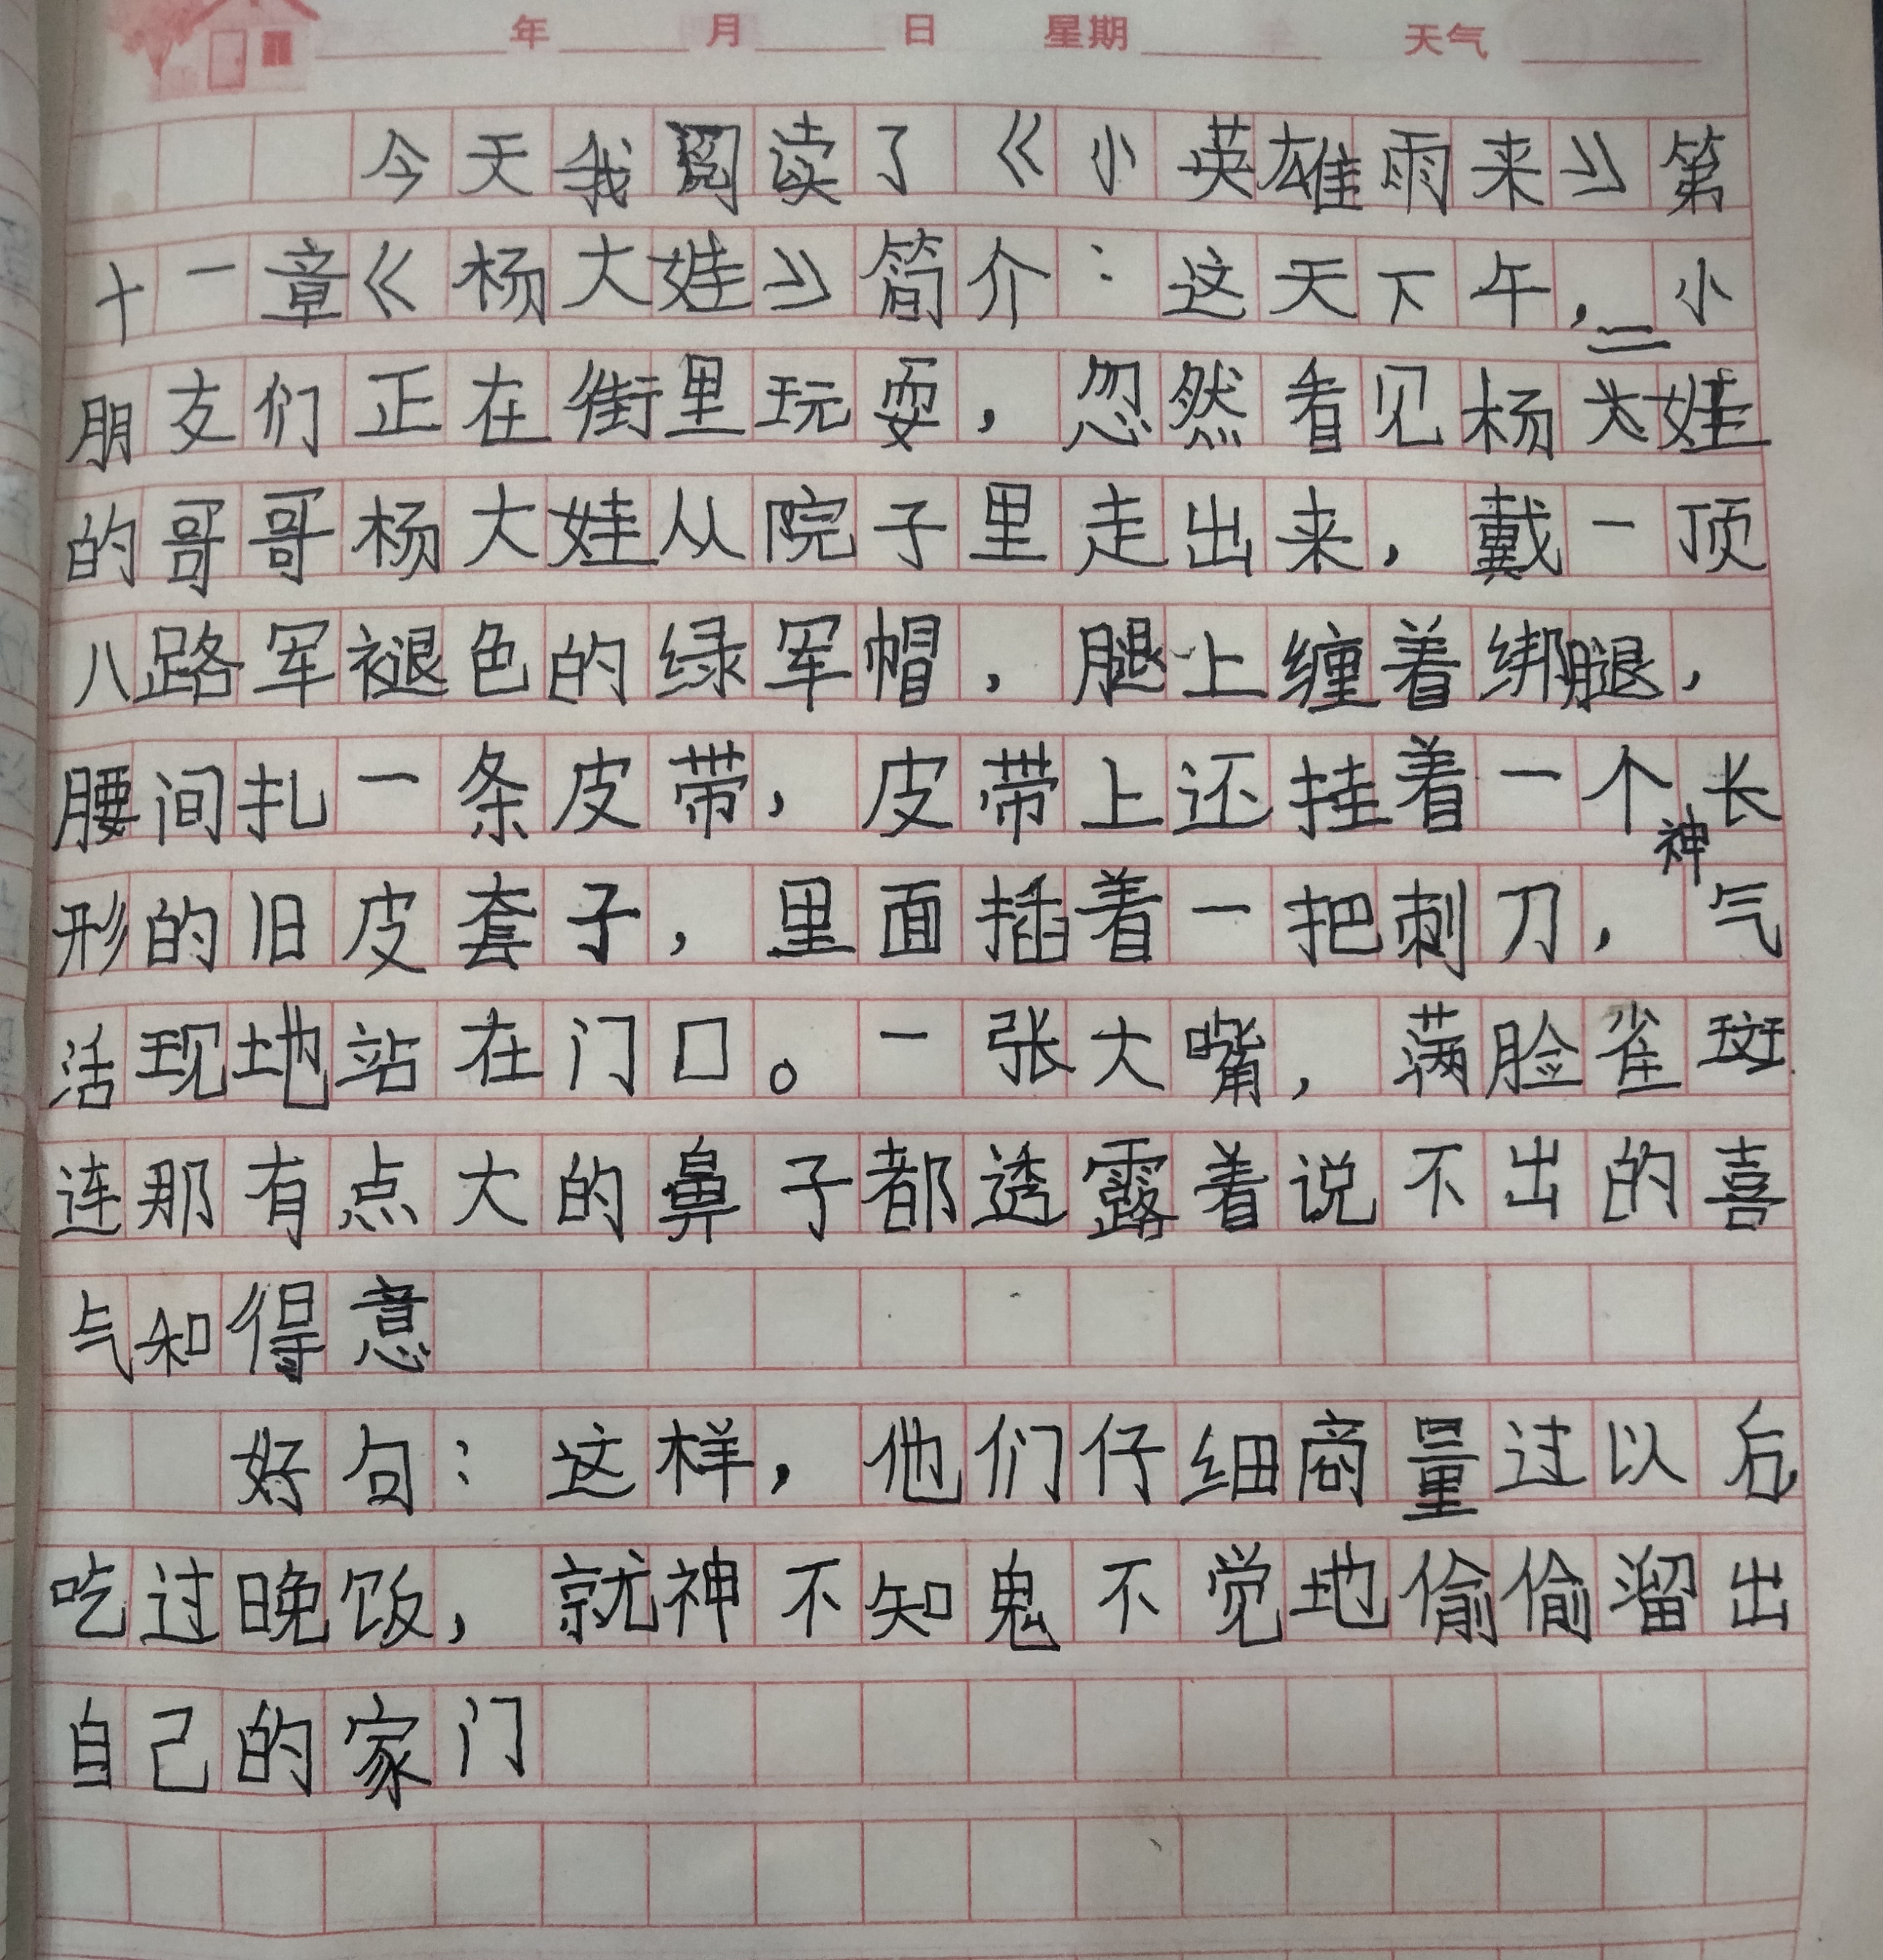 年 月 日 星期 天气
今天我阅读了《小英雄雨来》第
十一章《杨大娃》简介：这天下午，小
朋友们正在街里玩耍，忽然看见杨二娃
的哥哥杨大娃从院子里走出来，戴一顶
八路军褪色的绿军帽，腿上缠着绑腿，
腰间扎一条皮带，皮带上还挂着一个长
形的旧皮套子，里面插着一把刺刀，神气
活现地站在门口。一张大嘴，满脸雀斑
连那有点大的鼻子都透露着说不出的喜
气和得意
好句：这样，他们仔细商量过以后
吃过晚饭，就神不知鬼不觉地偷偷溜出
自己的家门